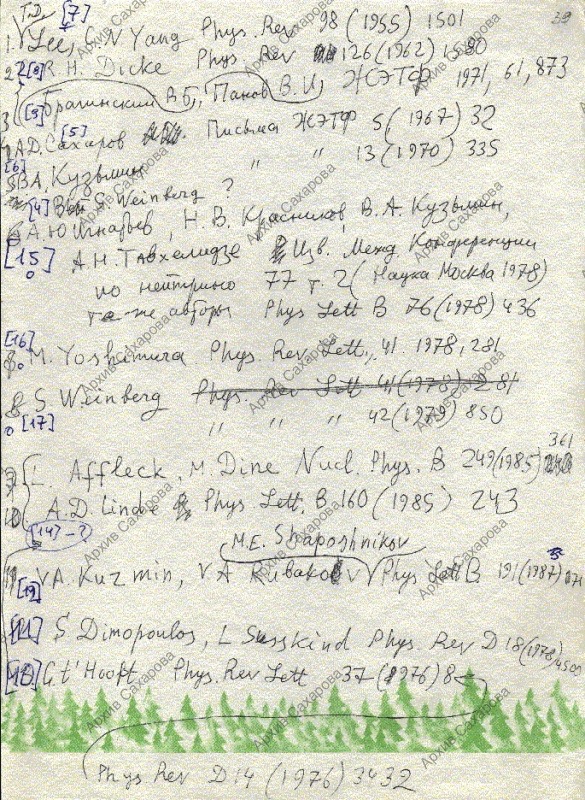 39
T.D. [7]
1. Lee, C.N Yang Phys. Rev 98 (1955) 1501
2 [8] R.H. Dicke Phys. Rev 126 (1962) 1580
3 [3] Брагинский В.Б., Панов В.И., ЖЭТФ 1971, 61, 873
[5]
А.Д. Сахаров Письма ЖЭТФ 5 (1967) 32
[6]
В.А. Кузьмин " " 13 (1970) 335
[4] S. Weinberg ?
А.Ю Игнатьев, Н.В. Красников, В.А. Кузьмин,
[15] А.Н. Тавхелидзе Изв. Межд Конференции
по нейтрино 77 т. 2 (Наука Москва 1978)
те-же авторы Phys Lett B 76 (1978) 436
[16]
8. M. Yoshimura Phys. Rev. Lett., 41. 1978, 281
S. Weinberg Phys. Rev Lett 41 (1978) 281
[17] " " " 42 (1979) 850
361
L. Affleck, M. Dine Nucl. Phys. B 249 (1985)
10 A.D. Linde Phys Lett. B 160 (1985) 243
[14] - ?
M.E. Shaposhnikov
[19] V.A. Kuzmin, V A Rubakov Phys Lett B 191 (1987) 171
[11] S. Dimopoulos, L Susskind Phys. Rev D 18 (1978) 4500
[10] G. t' Hooft. Phys. Rev Lett 37 (1976) 8
Phys Rev D14 (1976) 3432
Архив Сахарова